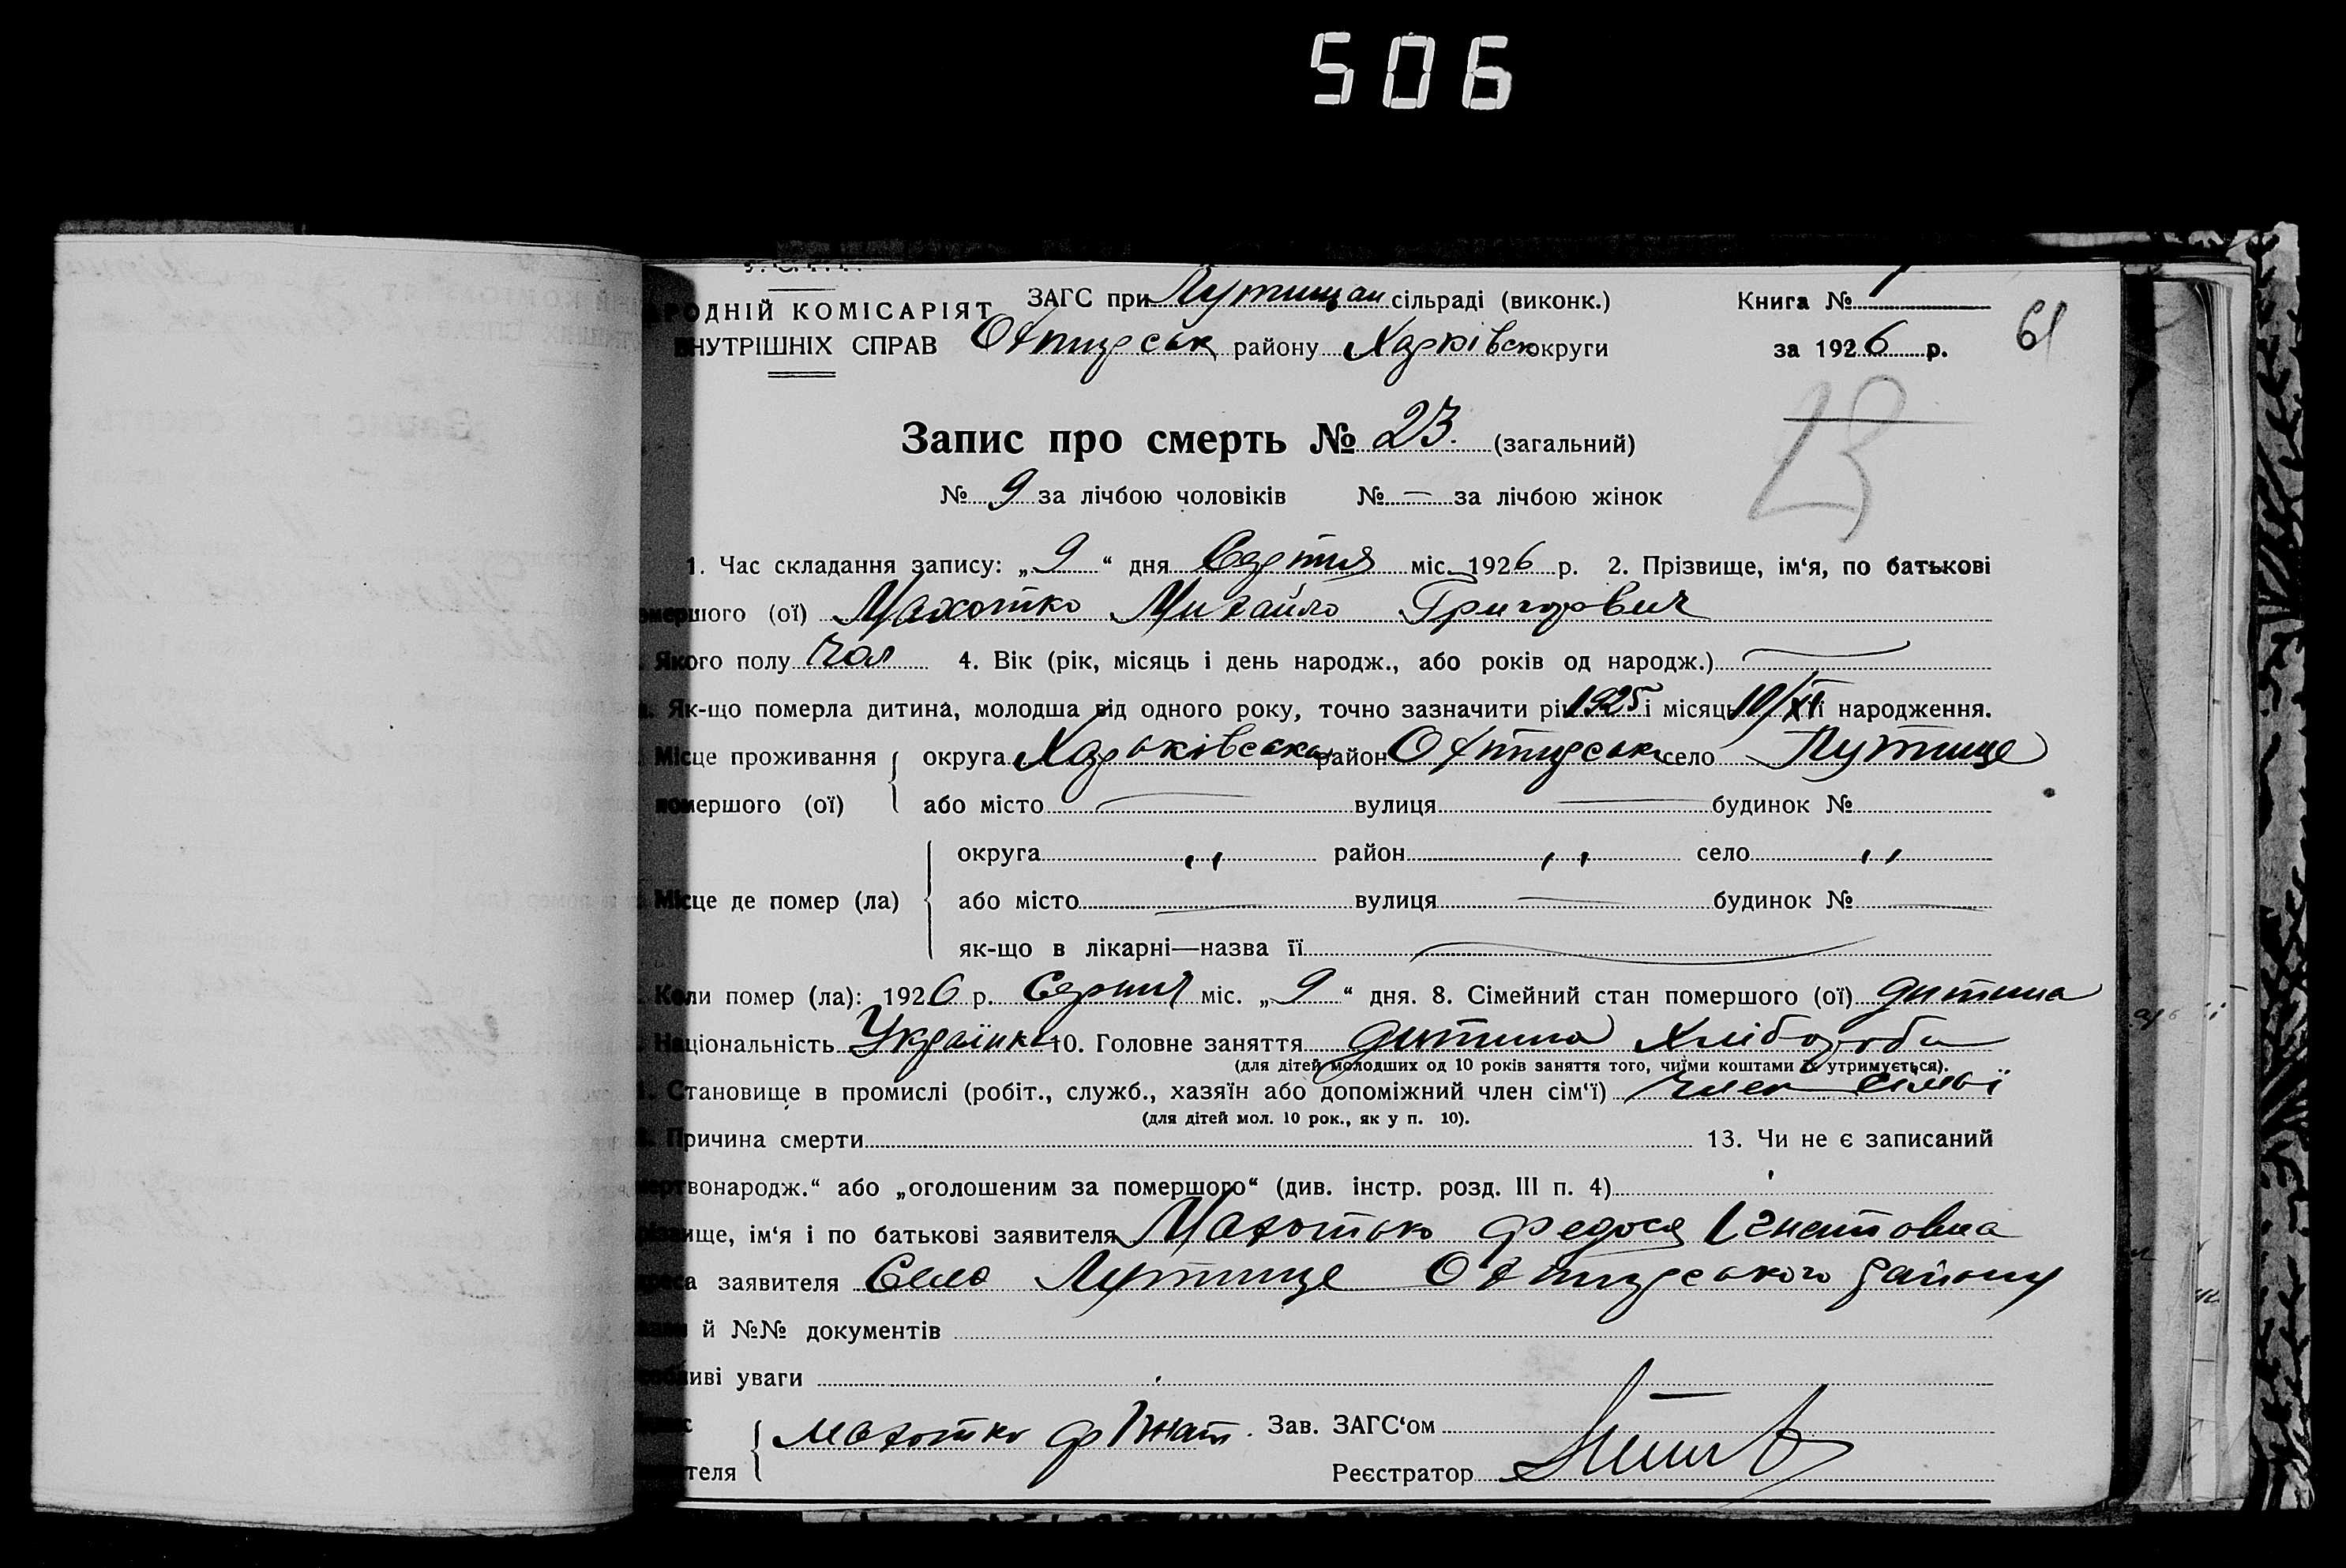 506
РОДНІЙ КОМІСАРІЯТ ЗАГС при Лутищан сільраді (виконк.) Книга № 1
ВНУТРІШНІХ СПРАВ Охтирськ району Харківськ округи за 1926 р. 61
Запис про смерть № 23. (загальний)
23
№ 9 за лічбою чоловіків № — за лічбою жінок
1. Час складання запису: „9“ дня Серпня міс. 1926 р. 2. Прізвище, ім‘я, по батькові
мершого (ої) Махотко Михайло Григорович
Якого полу Чол 4. Вік (рік, місяць і день народж., або років од народж.) —
Як-що померла дитина, молодша від одного року, точно зазначити рік 1925 і місяць 10/XI її народження.
Місце проживання округа Харьківська район Охтирськ село Лутище
помершого (ої) або місто — вулиця — будинок №
округа „ район „ село „
Місце де помер (ла) або місто — вулиця — будинок № —
як-що в лікарні—назва її —
Коли помер (ла): 1926 р. Серпня міс. „9“ дня. 8. Сімейний стан помершого (ої) дитина
Національність Українка 10. Головне заняття дитина Хлібороба
(для дітей молодших од 10 років заняття того, чиїми коштами їх утримується).
Становище в промислі (робіт., служб., хазяїн або допоміжний член сім‘ї) член сімьї
(для дітей мол. 10 рок., як у п. 10).
Причина смерти 13. Чи не є записаний
ертвонародж.“ або „оголошеним за помершого“ (див. інстр. розд. III п. 4)
ище, ім‘я і по батькові заявителя Махотько Федося Ігнатовна
са заявителя Село Лутище Охтирського району
й №№ документів
ливі уваги
Махотко Ф Ігнат. Зав. ЗАГС‘ом
теля Реєстратор